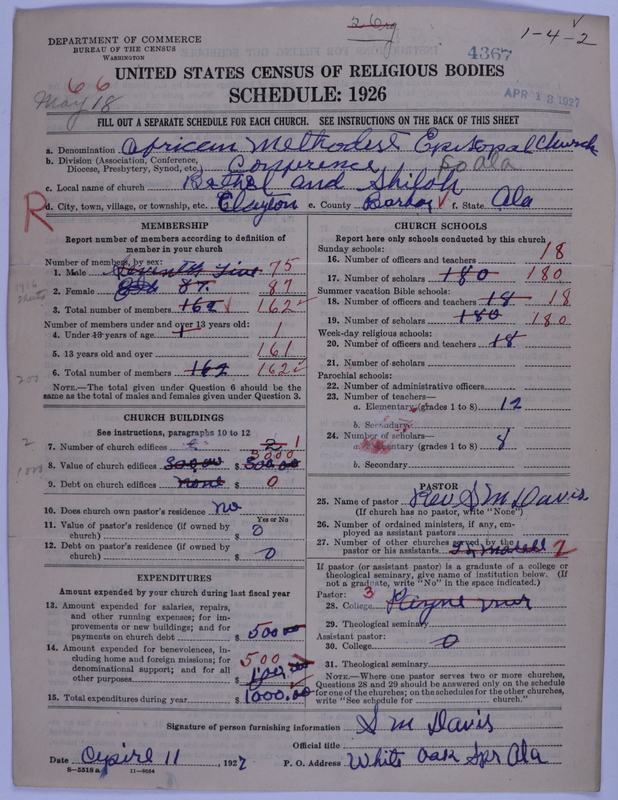 1-4-2
DEPARTMENT OF COMMERCE
BUREAU OF THE CENSUS
WASHINGTON
4367
66
May 18
UNITED STATES CENSUS OF RELIGIOUS BODIES
SCHEDULE: 1926
APR 13 1927
FILL OUT A SEPARATE SCHEDULE FOR EACH CHURCH. SEE INSTRUCTIONS ON THE BACK OF THIS SHEET
a. Denomination African Methodist Episcopal Church
b. Division (Association, Conference, Diocese, Presbytery, Synod, etc.) Conference So Ala
c. Local name of church Bethel and Shiloh
R
d. City, town, village, or township, etc. Clayton e. County Barbor f. State Ala
MEMBERSHIP
Report number of members according to definition of
member in your church
Number of members, by sex:
1. Male Seventy Five 75
2. Female 87 87
3. Total number of members 162 162
Number of members under and over 13 years old:
4. Under 13 years of age 1 1
5. 13 years old and over 161
6. Total number of members 162 162
NOTE.—The total given under Question 6 should be the
same as the total of males and females given under Question 3.
CHURCH BUILDINGS
See instructions, paragraphs 10 to 12
7. Number of church edifices 2 1
8. Value of church edifices 500.00 $ 500.00 3000
9. Debt on church edifices none $ 0
10. Does church own pastor's residence? no
Yes or No
11. Value of pastor's residence (if owned by
church) $ 0
12. Debt on pastor's residence (if owned by
church) $ 0
EXPENDITURES
Amount expended by your church during last fiscal year
13. Amount expended for salaries, repairs,
and other running expenses; for im-
provements or new buildings; and for
payments on church debt $ 500.00
14. Amount expended for benevolences, in-
cluding home and foreign missions; for
denominational support; and for all
other purposes $ 500
15. Total expenditures during year $ 1000.00
CHURCH SCHOOLS
Report here only schools conducted by this church
Sunday schools:
16. Number of officers and teachers 18
17. Number of scholars 180 180
Summer vacation Bible schools:
18. Number of officers and teachers 18 18
19. Number of scholars 180 180
Week-day religious schools:
20. Number of officers and teachers 18
21. Number of scholars
Parochial schools:
22. Number of administrative officers
23. Number of teachers—
a. Elementary (grades 1 to 8) 12
b. Secondary
24. Number of scholars—
a. Elementary (grades 1 to 8) 8
b. Secondary
PASTOR
25. Name of pastor Rev. S M Davis
(If church has no pastor, write "None")
26. Number of ordained ministers, if any, em-
ployed as assistant pastors
27. Number of other churches served by the
pastor or his assistants 2
If pastor (or assistant pastor) is a graduate of a college or
theological seminary, give name of institution below. (If
not a graduate, write "No" in the space indicated.)
Pastor: 3
28. College Payne
29. Theological seminary
Assistant pastor:
30. College 0
31. Theological seminary
NOTE.—Where one pastor serves two or more churches,
Questions 28 and 29 should be answered only on the schedule
for one of the churches; on the schedules for the other churches,
write "See schedule for church."
Signature of person furnishing information S M Davis
Official title
Date Apirl 11, 1927 P. O. Address White Oak Spr Ala
S-5518a 11-9054